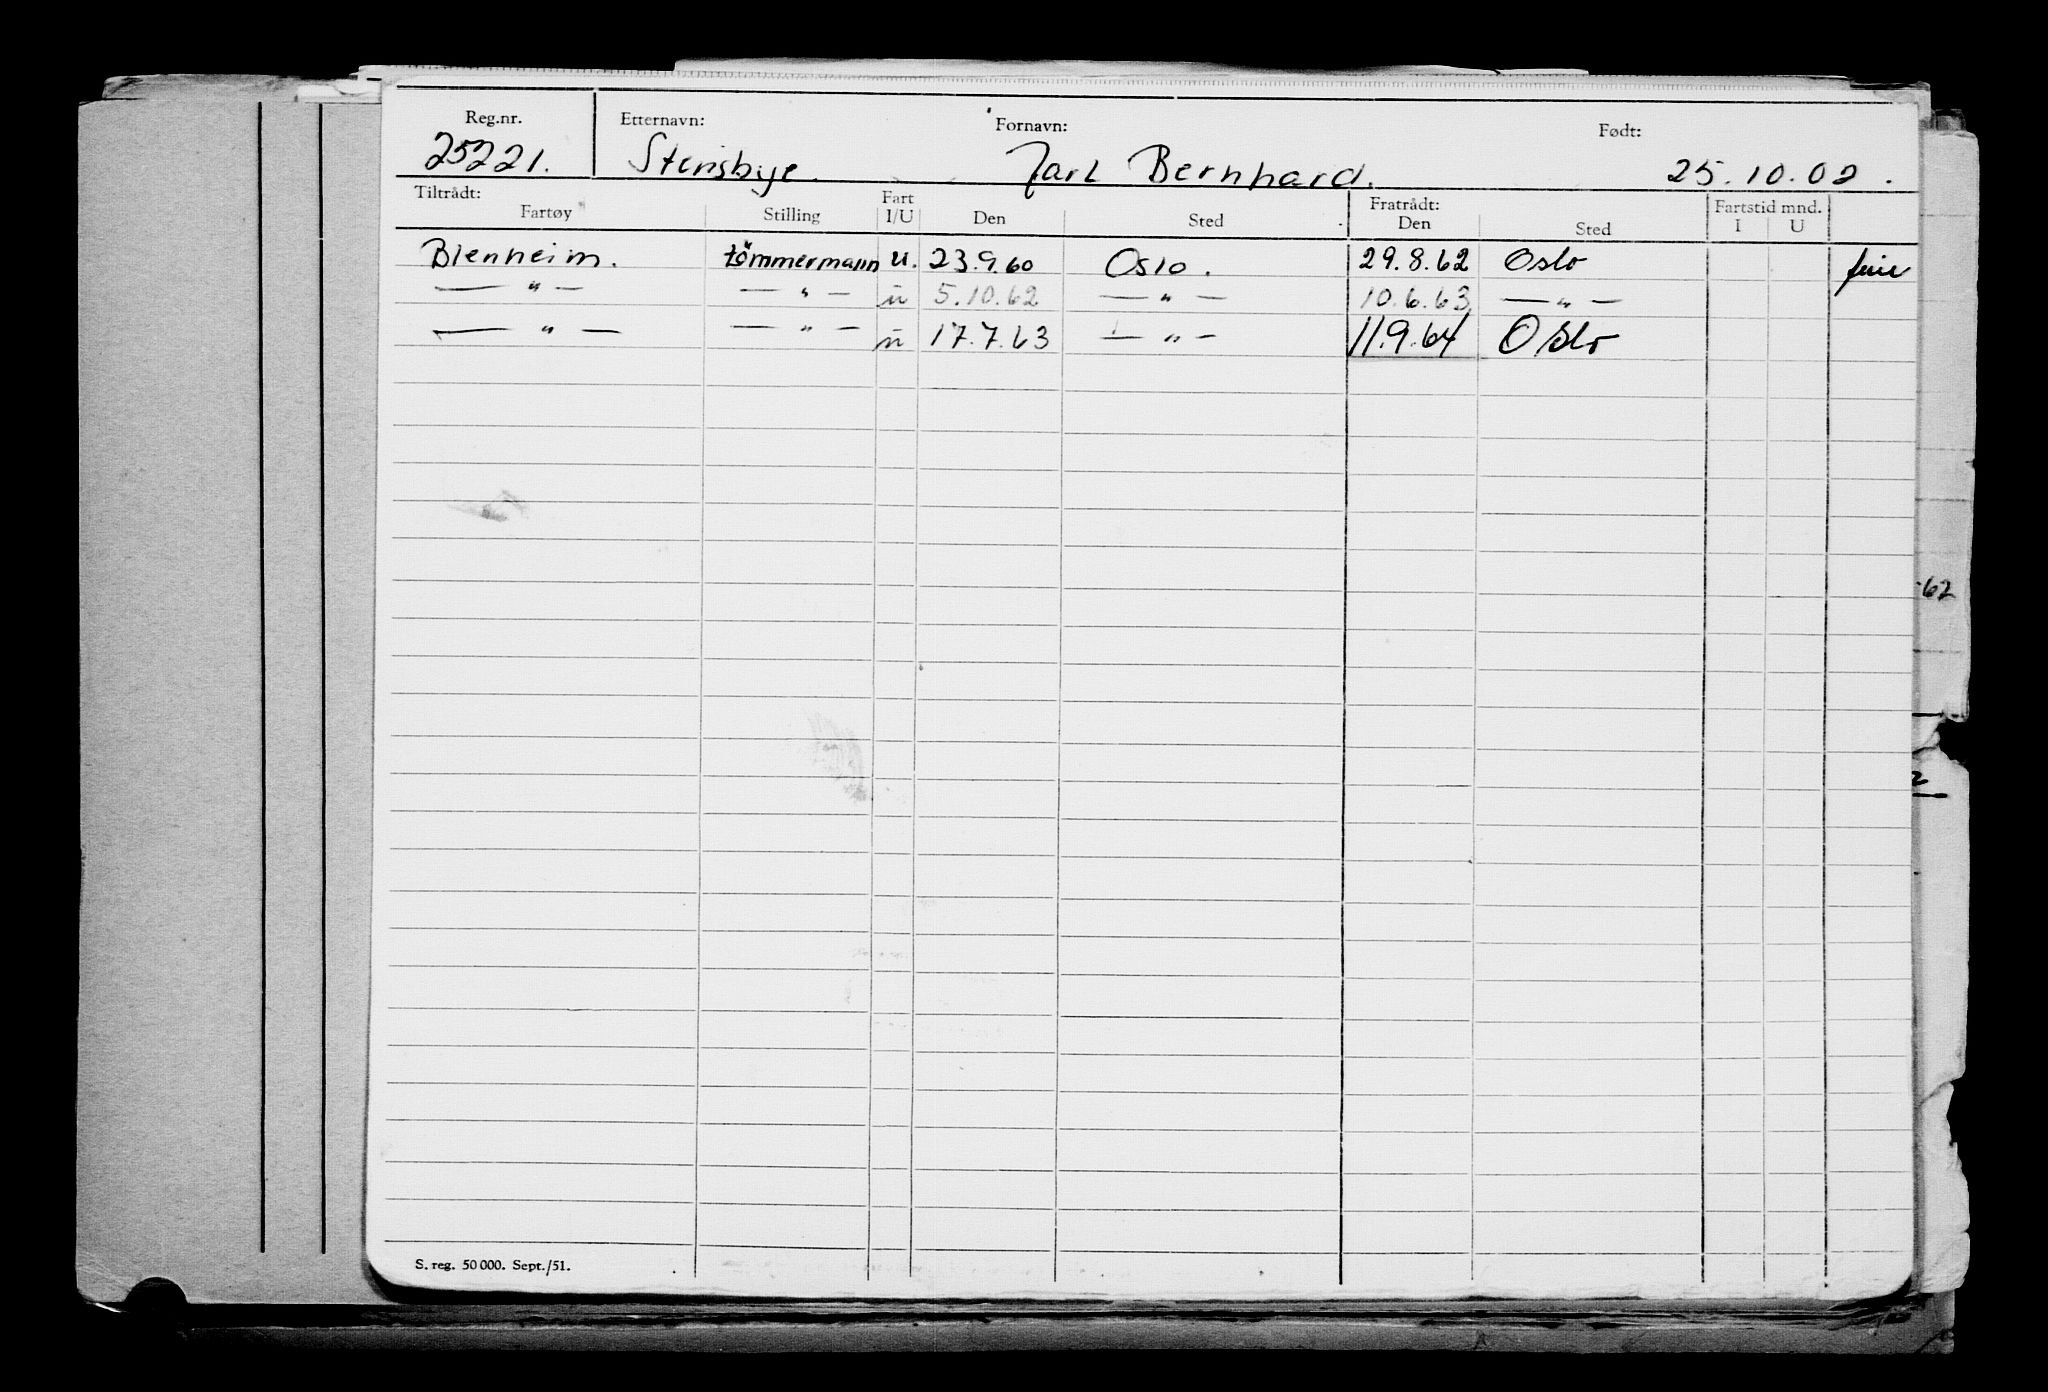 Reg.nr. Etternavn: Fornavn: Født:
25221. Stensbye. Jarl Bernhard. 25.10.02.
Tiltrådt: Fart Fratrådt: Fartstid mnd.
Fartøy Stilling I/U Den Sted Den Sted I U
Blenheim. tömmermann u. 23.9.60 Oslo. 29.8.62 Oslo ferie
— " — — " — u 5.10.62 — " — 10.6.63 — " —
— " — — " — u 17.7.63 — " — 11.9.64 Oslo
62
S. reg. 50 000. Sept./51.